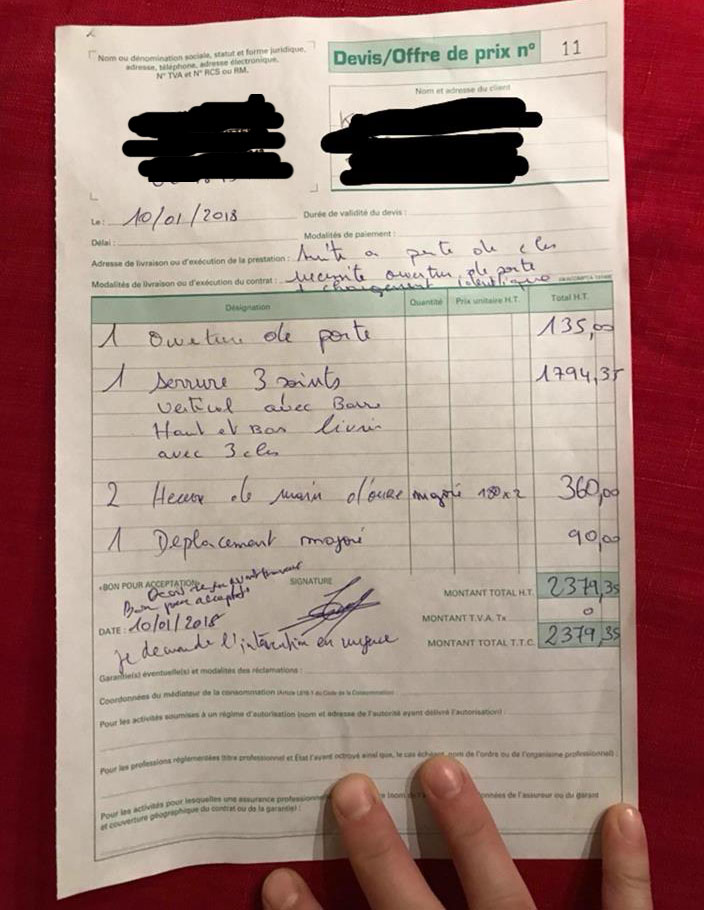 Nom ou dénomination sociale, statut et forme juridique,
adresse, téléphone, adresse électronique,
N° TVA et N° RCS ou RM.
Devis/Offre de prix n° 11
Nom et adresse du client
Le : 10/01/2018
Durée de validité du devis :
Délai :
Modalités de paiement :
Adresse de livraison ou d'exécution de la prestation : suite a perte de cles
Modalités de livraison ou d'exécution du contrat : necessite ouverture de porte
+ changement identique
Désignation Quantité Prix unitaire H.T. Total H.T.
1 Ouverture de porte 135,00
1 serrure 3 points 1794,35
vertical avec Barre
Haut et Bas livrée
avec 3 cles
2 Heures de main d'œuvre majoré 180 x 2 360,00
1 Deplacement majoré 90,00
«BON POUR ACCEPTATION»
SIGNATURE
MONTANT TOTAL H.T. 2379,35
Bon pour acceptation
MONTANT T.V.A. Tx 0
DATE : 10/01/2018
MONTANT TOTAL T.T.C. 2379,35
je demande l'intervention en urgence
Garantie(s) éventuelle(s) et modalités des réclamations :
Coordonnées du médiateur de la consommation
Pour les activités soumises à un régime d'autorisation (nom et adresse de l'autorité ayant délivré l'autorisation) :
Pour les professions réglementées (titre professionnel et État l'ayant octroyé ainsi que, le cas échéant, nom de l'ordre ou de l'organisme professionnel) :
Pour les activités pour lesquelles une assurance professionn (nom données de l'assureur ou du garant
et couverture géographique du contrat ou de la garantie) :